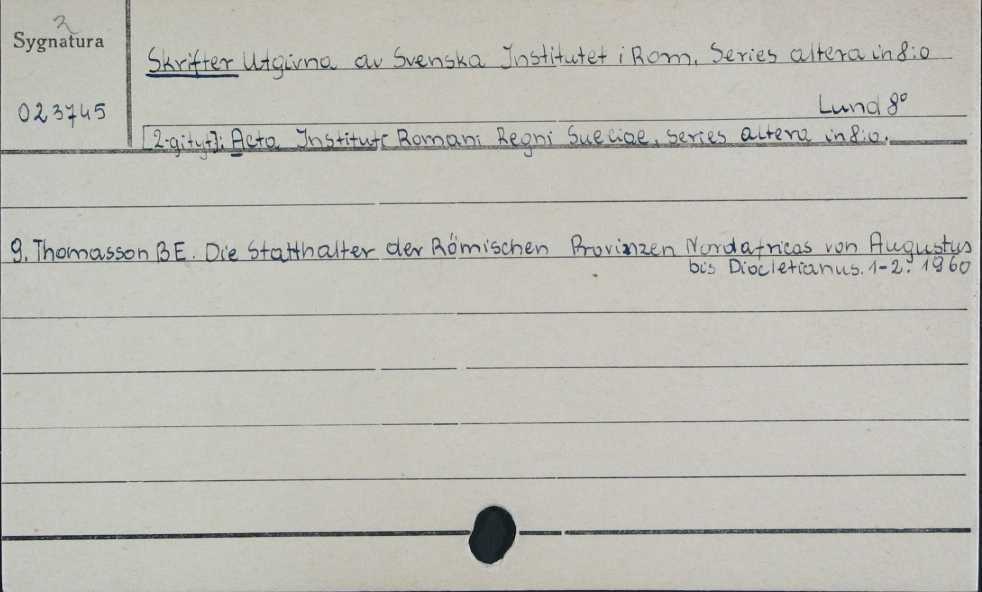 2
Sygnatura
Skrifter Utgivna av Svenska Institutet i Rom. Series altera in 8:o
023745
Lund 8°
[2-gi tyt]: Acta Instituti Romani Regni Sueciae, series altera in 8:o.
9. Thomasson BE. Die Statthalter der Römischen Provinzen Nordafricas von Augustus
bis Diocletianus. 1-2. 1960